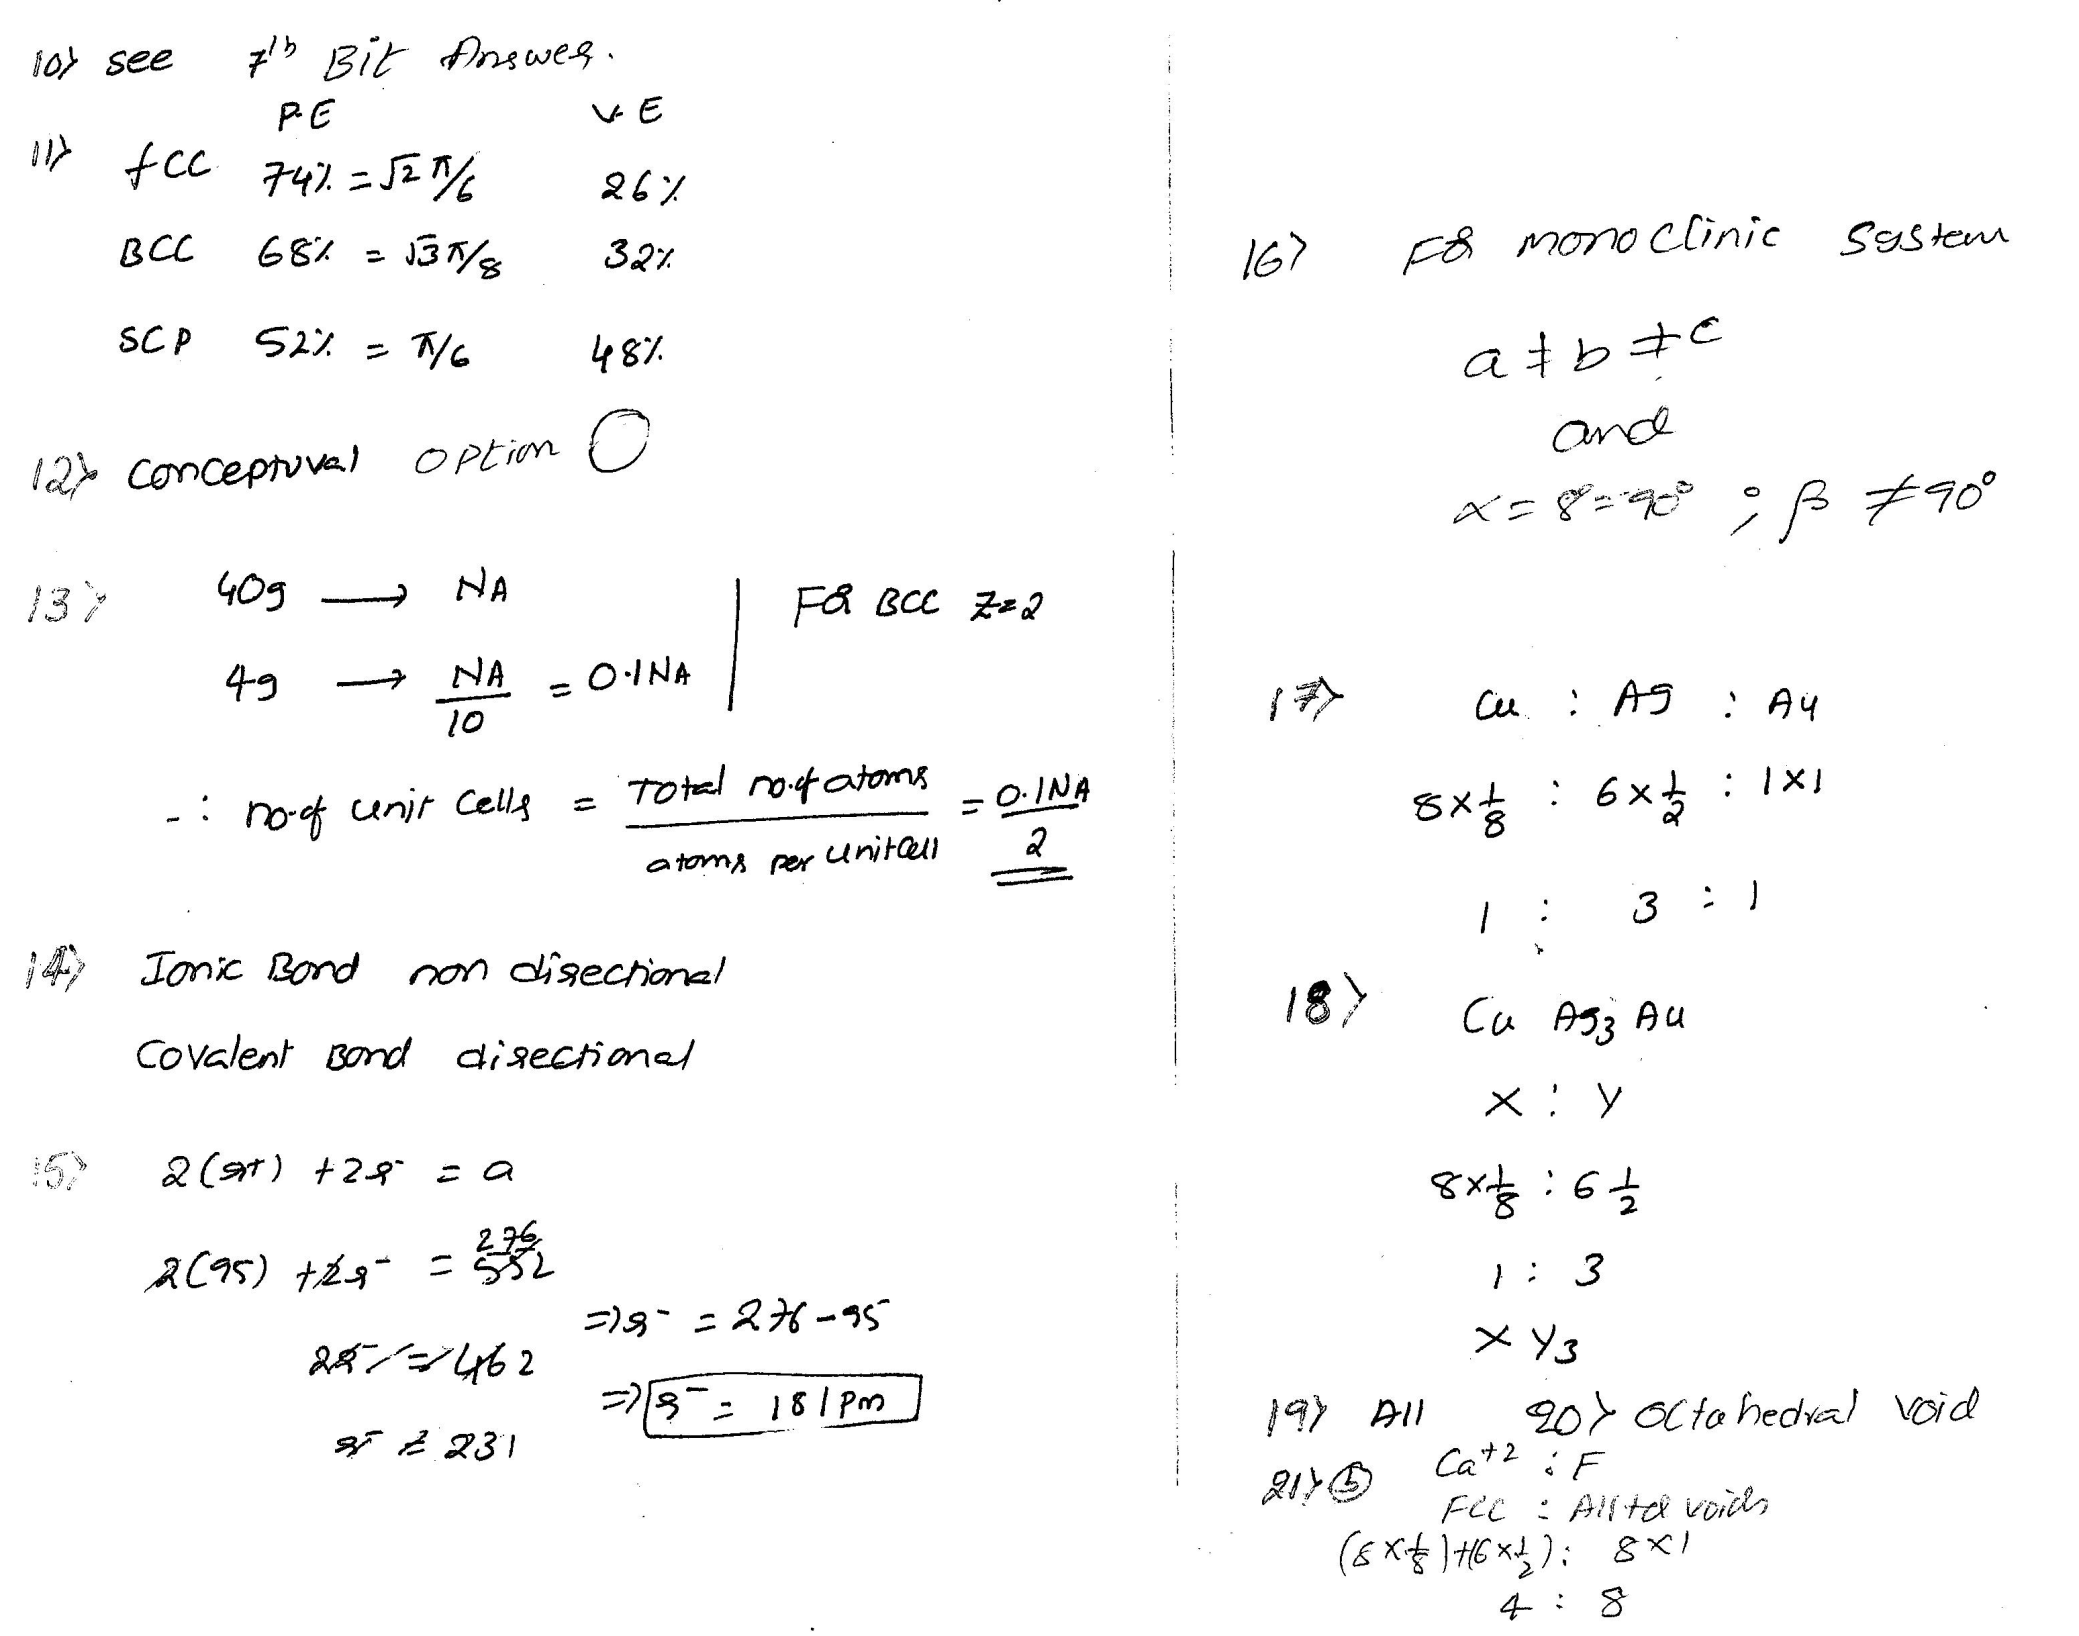 10) see 7th Bit Answer.
P.E V.E
11) fCC 74% = √2 π/6 26%
BCC 68% = √3 π/8 32%
SCP 52% = π/6 48%
12) Conceptuval Option
13) 40g → NA
For BCC Z=2
4g → NA/10 = 0.1NA
∴ no.of unit cells = Total no.of atoms / atoms per unit cell = 0.1NA/2
14) Ionic Bond non directional
Covalent Bond directional
15) 2(r+) + 2r- = a
2(95) + 2r- = 552 276
2r- = 462
r- = 231
=> r- = 276-95
=> r- = 181pm
16) For monoclinic System
a ≠ b ≠ c
and
α = γ = 90° ; β ≠ 90°
17) Cu : Ag : Au
8×1/8 : 6×1/2 : 1×1
1 : 3 : 1
Cu Ag3 Au
18) X : Y
8×1/8 : 6 1/2
1 : 3
XY3
19) All 20) Octahedral void
21) Ca+2 : F
FCC : All td voids
(8×1/8)+(6×1/2) : 8×1
4 : 8